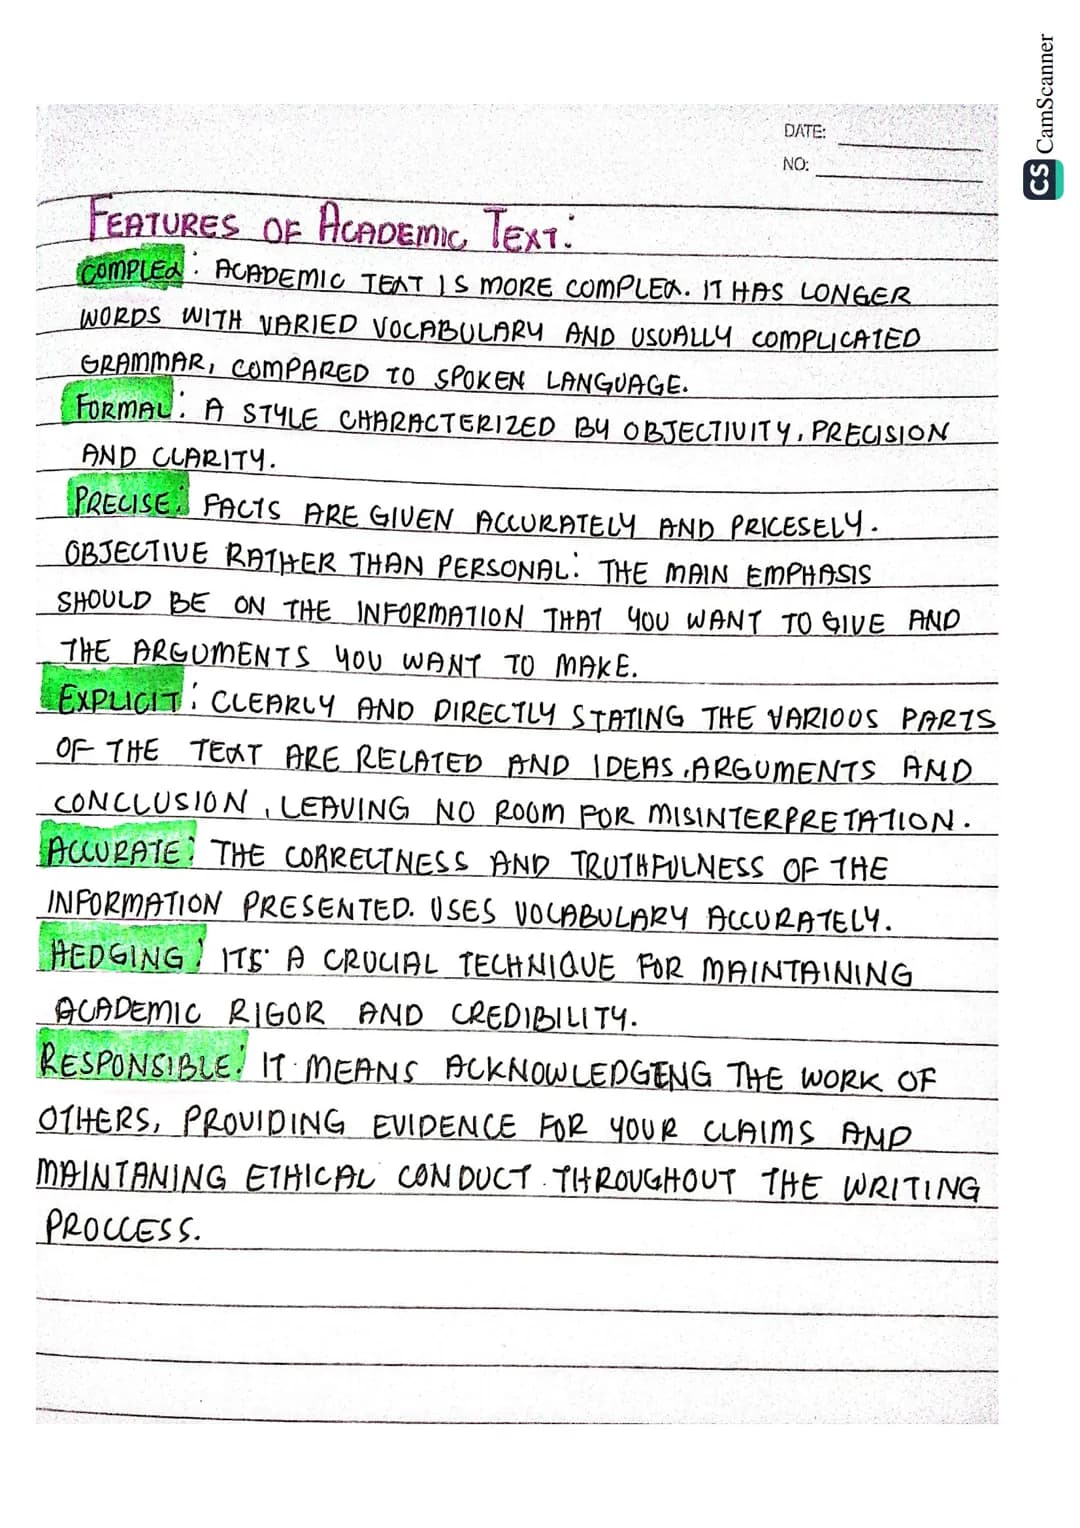 CS CamScanner
DATE:
NO:
FEATURES OF ACADEMIC TEXT:
COMPLEX: ACADEMIC TEXT IS MORE COMPLEX. IT HAS LONGER
WORDS WITH VARIED VOCABULARY AND USUALLY COMPLICATED
GRAMMAR, COMPARED TO SPOKEN LANGUAGE.
FORMAL: A STYLE CHARACTERIZED BY OBJECTIVITY, PRECISION
AND CLARITY.
PRECISE: FACTS ARE GIVEN ACCURATELY AND PRICESELY.
OBJECTIVE RATHER THAN PERSONAL: THE MAIN EMPHASIS
SHOULD BE ON THE INFORMATION THAT YOU WANT TO GIVE AND
THE ARGUMENTS YOU WANT TO MAKE.
EXPLICIT: CLEARLY AND DIRECTLY STATING THE VARIOUS PARTS
OF THE TEXT ARE RELATED AND IDEAS, ARGUMENTS AND
CONCLUSION, LEAVING NO ROOM FOR MISINTERPRETATION.
ACCURATE: THE CORRECTNESS AND TRUTHFULNESS OF THE
INFORMATION PRESENTED. USES VOCABULARY ACCURATELY.
HEDGING: ITS A CRUCIAL TECHNIQUE FOR MAINTAINING
ACADEMIC RIGOR AND CREDIBILITY.
RESPONSIBLE: IT MEANS ACKNOWLEDGENG THE WORK OF
OTHERS, PROVIDING EVIDENCE FOR YOUR CLAIMS AND
MAINTANING ETHICAL CONDUCT THROUGHOUT THE WRITING
PROCCESS.